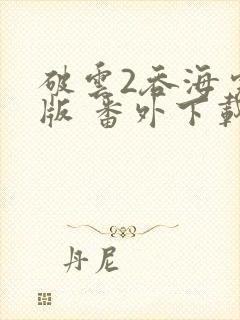 破雲2吞海
版 番外下載
丹尼